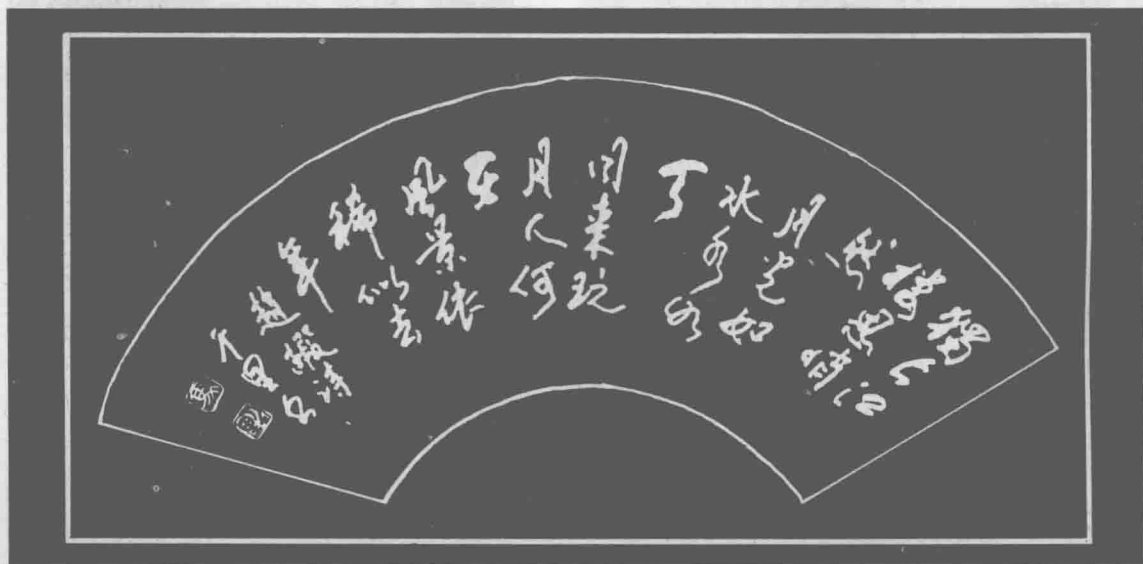 獨上江
樓思渺
然
月光如
水水如
天
同来玩
月人何
在
風景依
稀似去
年
趙嘏诗